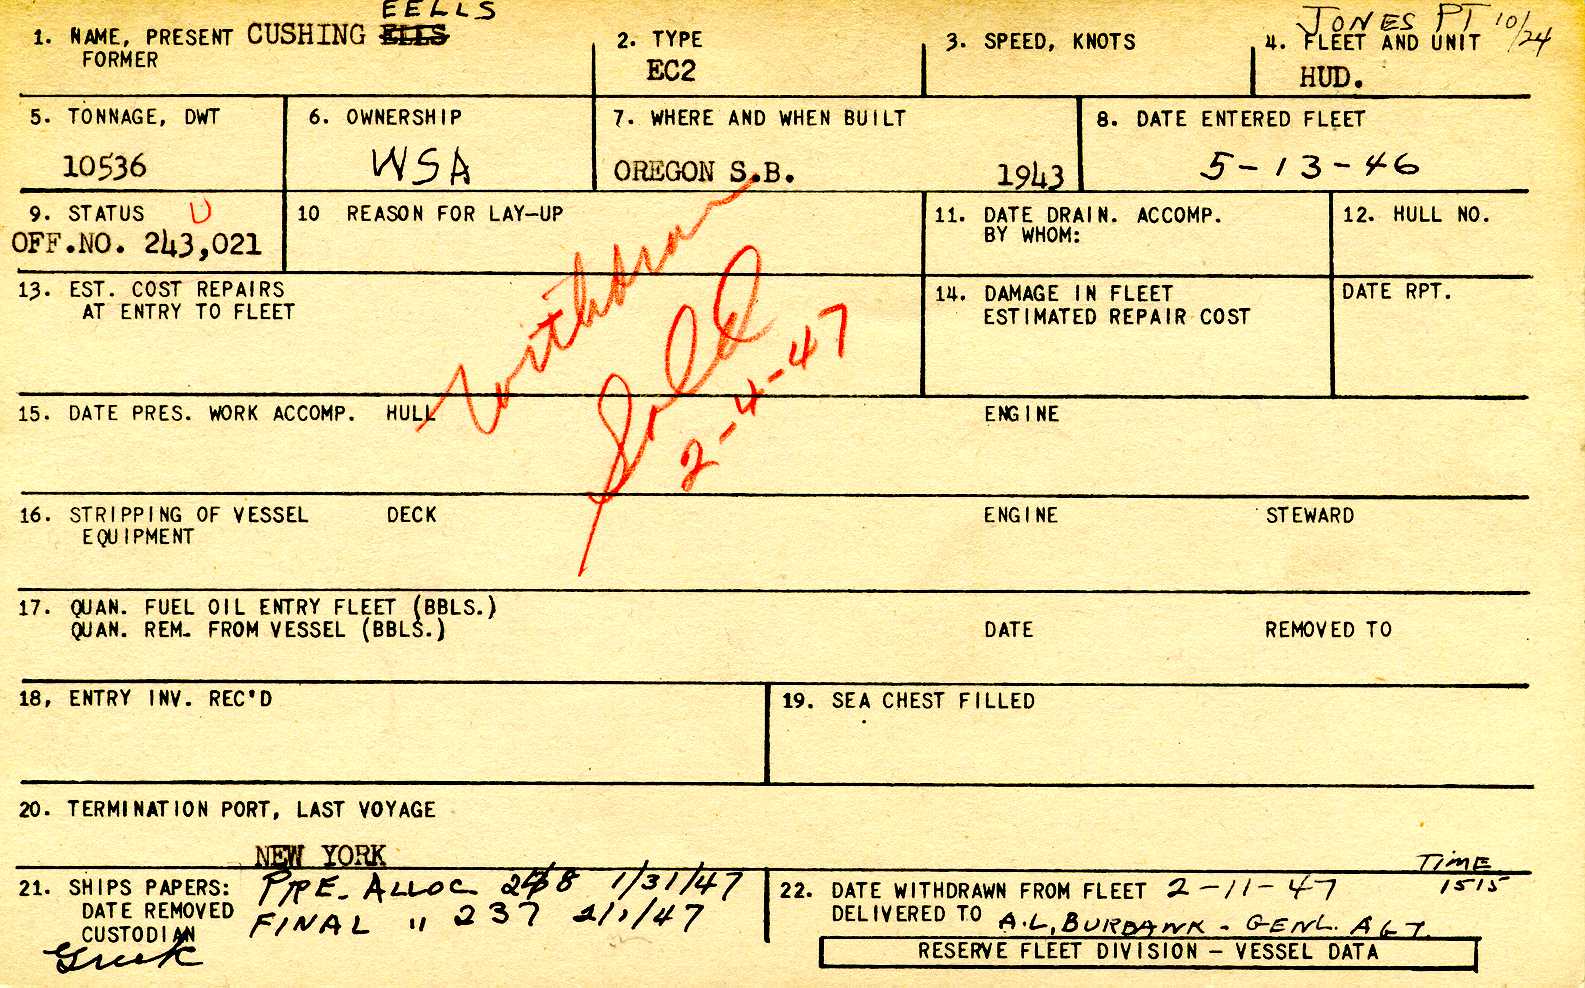 EELLS
1. NAME, PRESENT CUSHING ELLS
FORMER
2. TYPE
EC2
3. SPEED, KNOTS
JONES PT 10/24
4. FLEET AND UNIT
HUD.
5. TONNAGE, DWT
10536
6. OWNERSHIP
WSA
7. WHERE AND WHEN BUILT
OREGON S.B. 1943
8. DATE ENTERED FLEET
5-13-46
9. STATUS U
OFF.NO. 243,021
10 REASON FOR LAY-UP
11. DATE DRAIN. ACCOMP.
BY WHOM:
12. HULL NO.
Withdrawn
Sold
2-4-47
13. EST. COST REPAIRS
AT ENTRY TO FLEET
14. DAMAGE IN FLEET
ESTIMATED REPAIR COST
DATE RPT.
15. DATE PRES. WORK ACCOMP. HULL ENGINE
16. STRIPPING OF VESSEL DECK ENGINE STEWARD
EQUIPMENT
17. QUAN. FUEL OIL ENTRY FLEET (BBLS.)
QUAN. REM. FROM VESSEL (BBLS.) DATE REMOVED TO
18, ENTRY INV. REC'D
19. SEA CHEST FILLED
20. TERMINATION PORT, LAST VOYAGE
NEW YORK
21. SHIPS PAPERS: PRE-ALLOC 1/31/47
DATE REMOVED FINAL " 237 2/1/47
CUSTODIAN
Greek
TIME
22. DATE WITHDRAWN FROM FLEET 2-11-47 1515
DELIVERED TO A.L. BURBANK - GENL. AGT.
RESERVE FLEET DIVISION – VESSEL DATA